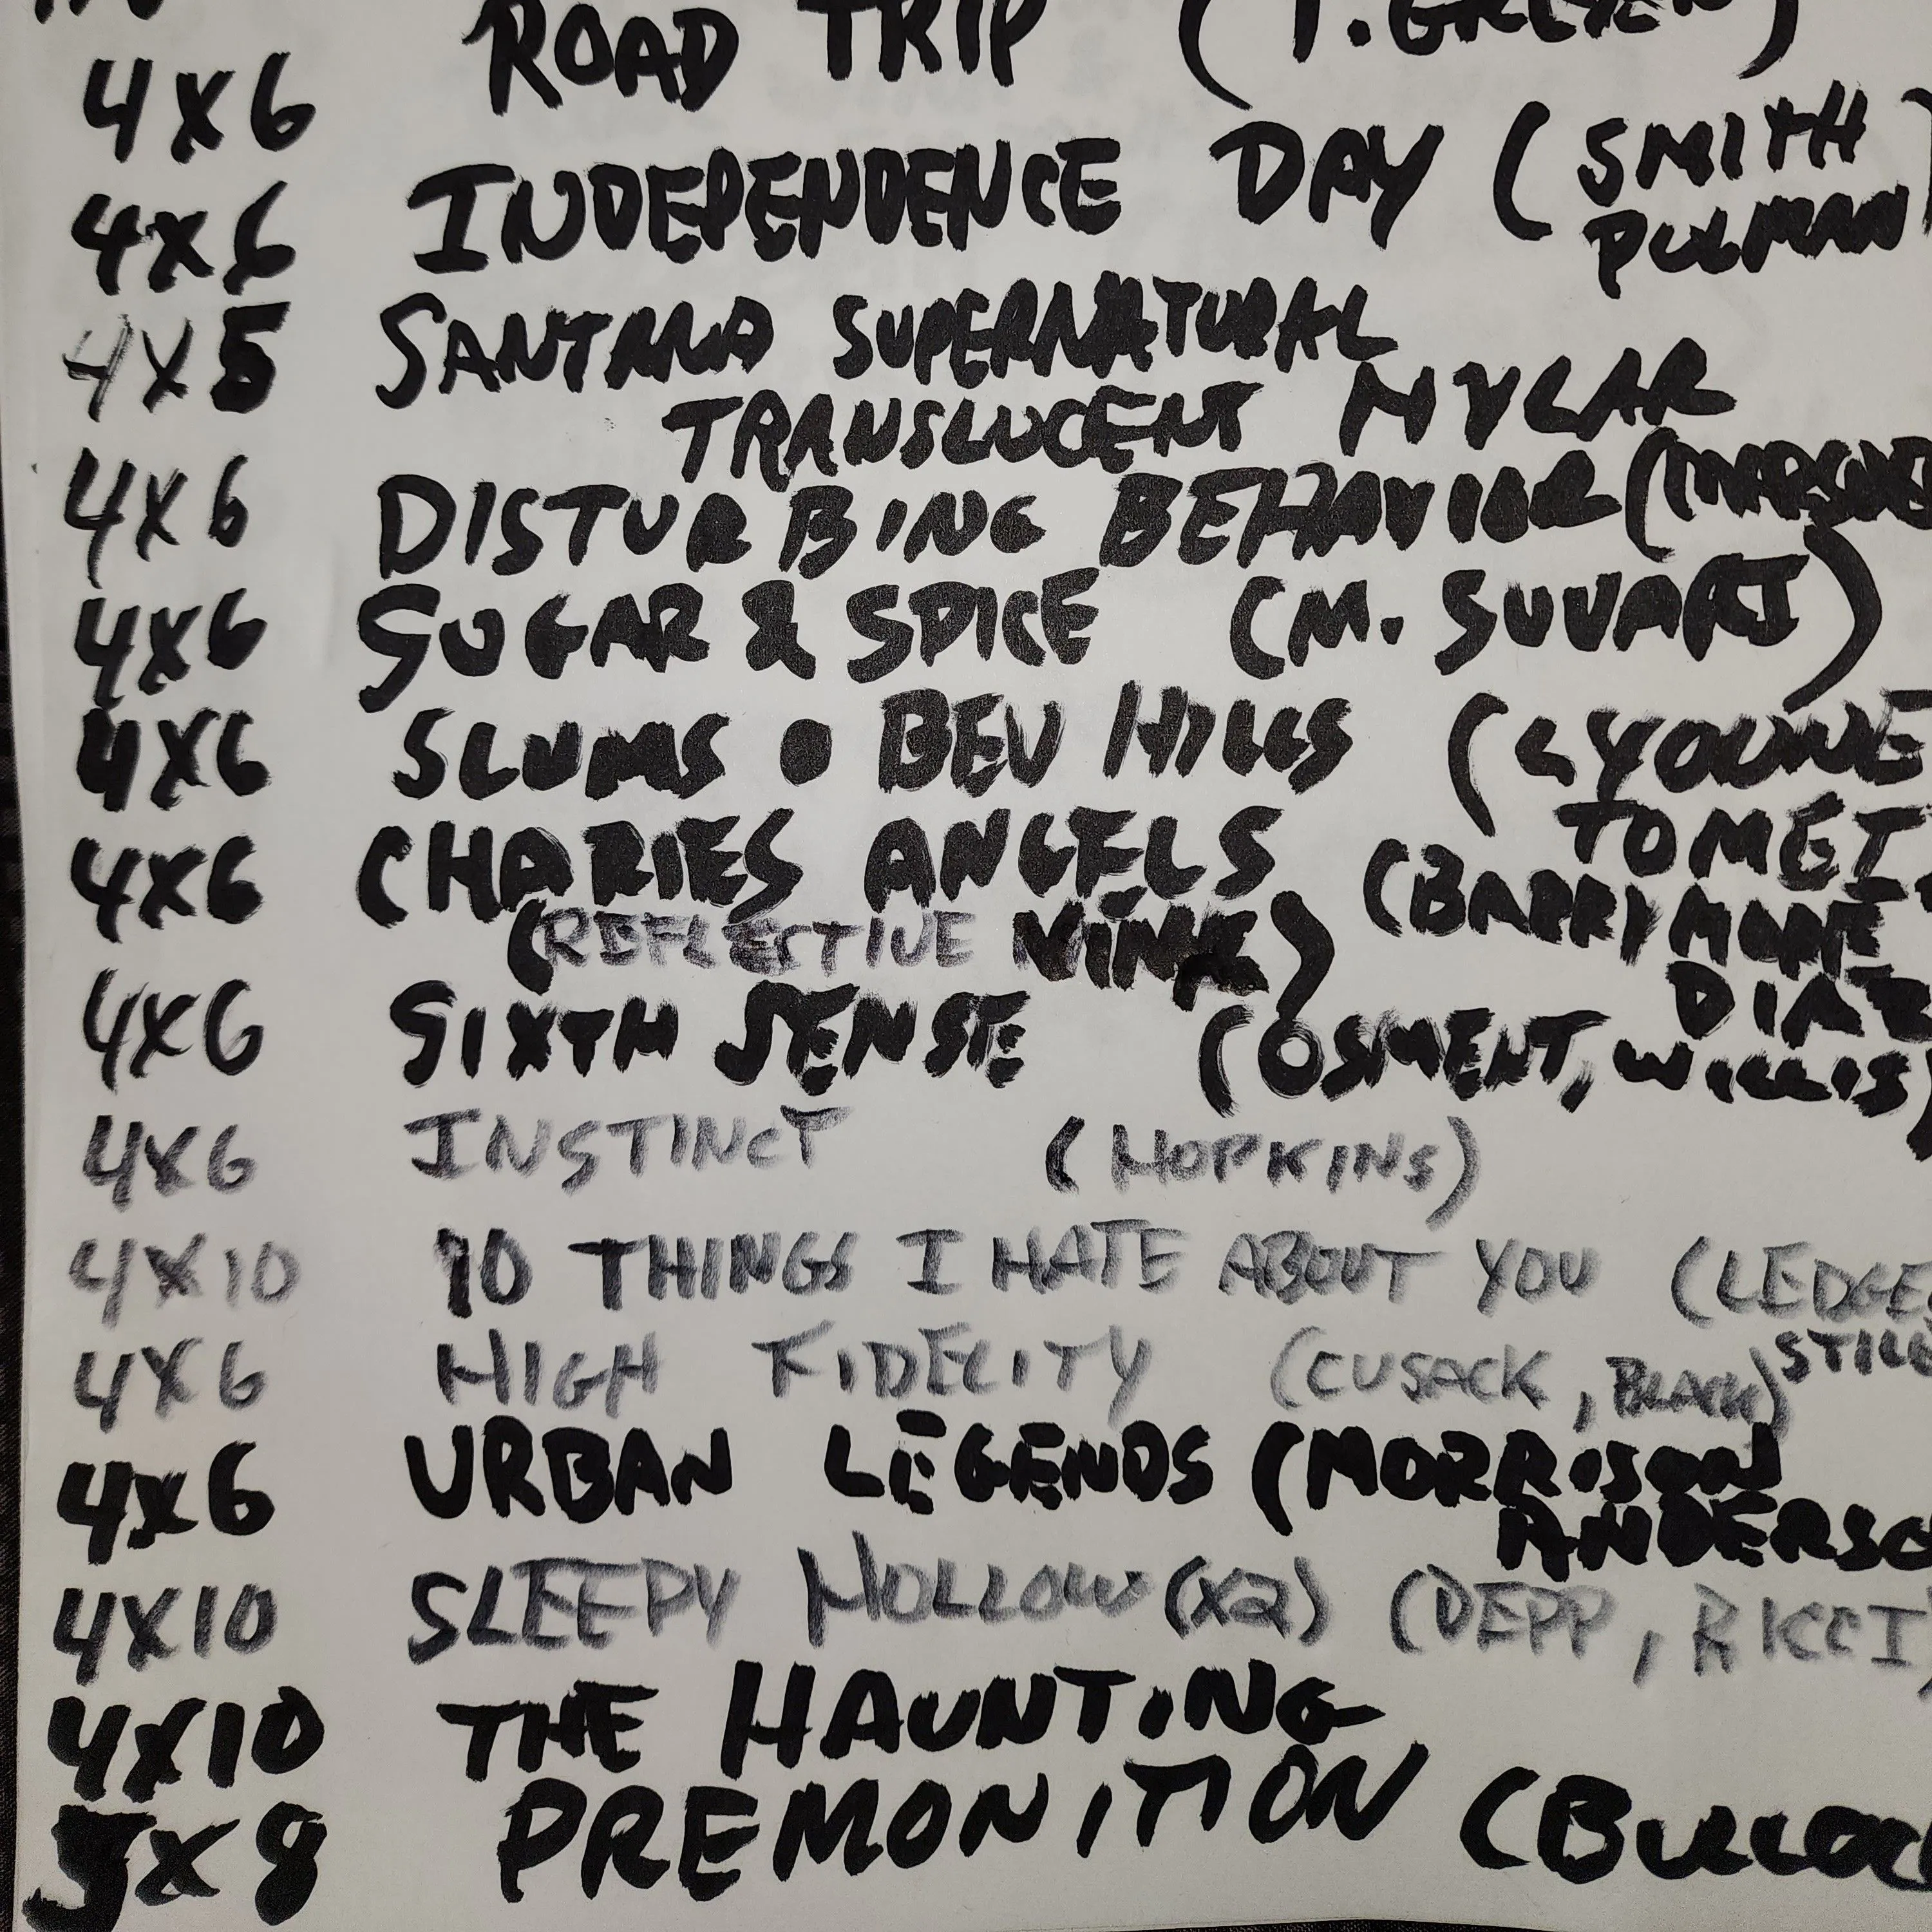 ROAD TRIP (T. GREEN)
4X6
4X6 INDEPENDENCE DAY (SMITH
PULMAN
4X5 SANTANA SUPERNATURAL
TRANSLUCENT MYLAR
4X6 DISTURBING BEHAVIOR (MARSDE
4X6 SUGAR & SPICE (M. SUVARI)
4X6 SLUMS • BEV HILLS (LYOUNE
TOMEI
4X6 CHARIES ANGELS (BARRYMORE
(REFLECTIVE VINYL) DIAZ
4X6 SIXTH SENSE (OSMENT, WILLIS)
4X6 INSTINCT (HOPKINS)
4X10 10 THINGS I HATE ABOUT YOU (LEDGE
STILE
4X6 HIGH FIDELITY (CUSACK, BLACK)
4X6 URBAN LEGENDS (MORRISON
ANDERSO
4X10 SLEEPY HOLLOW (X2) (DEPP, RICCI)
4X10 THE HAUNTING
5X8 PREMONITION (BULLOC